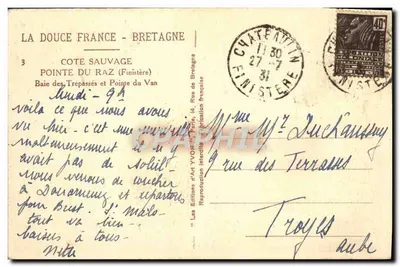 LA DOUCE FRANCE - BRETAGNE
3
COTE SAUVAGE
POINTE DU RAZ (Finistère)
Baie des Trépassés et Pointe du Van
lundi - 9h
voilà ce que nous avons
vu hier
malheureusement il n'y
avait pas de soleil -
nous venons de coucher
à Douarnenez et repartons
pour Brest. St malo
tout va bien -
baisers à tous -
Les Editions d'Art YVON
Reproduction interdite
CHATEAULIN
11 30
27 - 7
31
FINISTÈRE
40c
Mr Duchaussoy
9 rue des Terrasses
Troyes
Aube